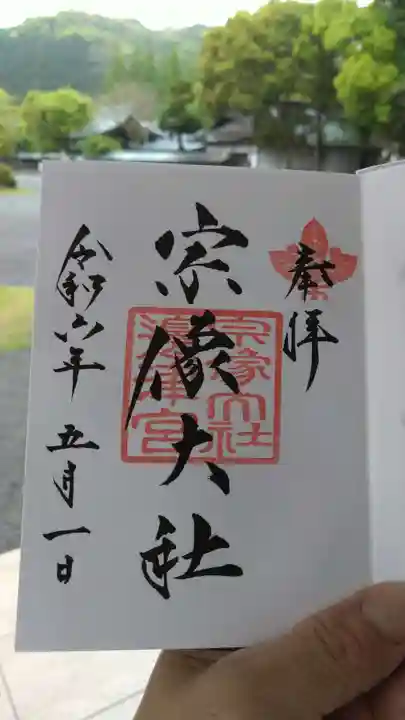 奉拝
宗像大社
宗像大社
邊津宮
令和六年 五月一日